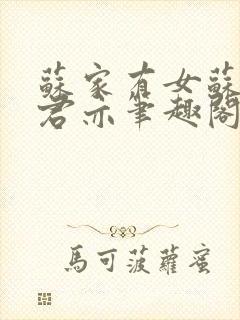 蘇家有女蘇
君亦筆趣閣
馬可菠蘿蜜